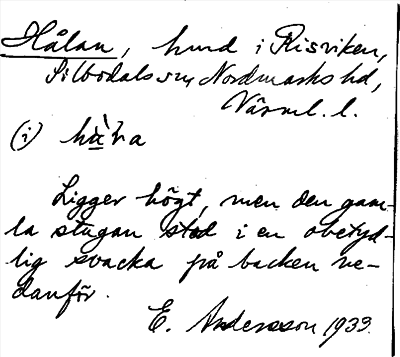 Hålan, hmd i Risviken,
Silbodals sn, Nordmarks hd,
Värml. l.
(i) hà̱ɫa
Ligger högt, men den gam-
la stugan stod i en obetyd-
lig svacka på backen ne-
danför.
E. Andersson 1933.